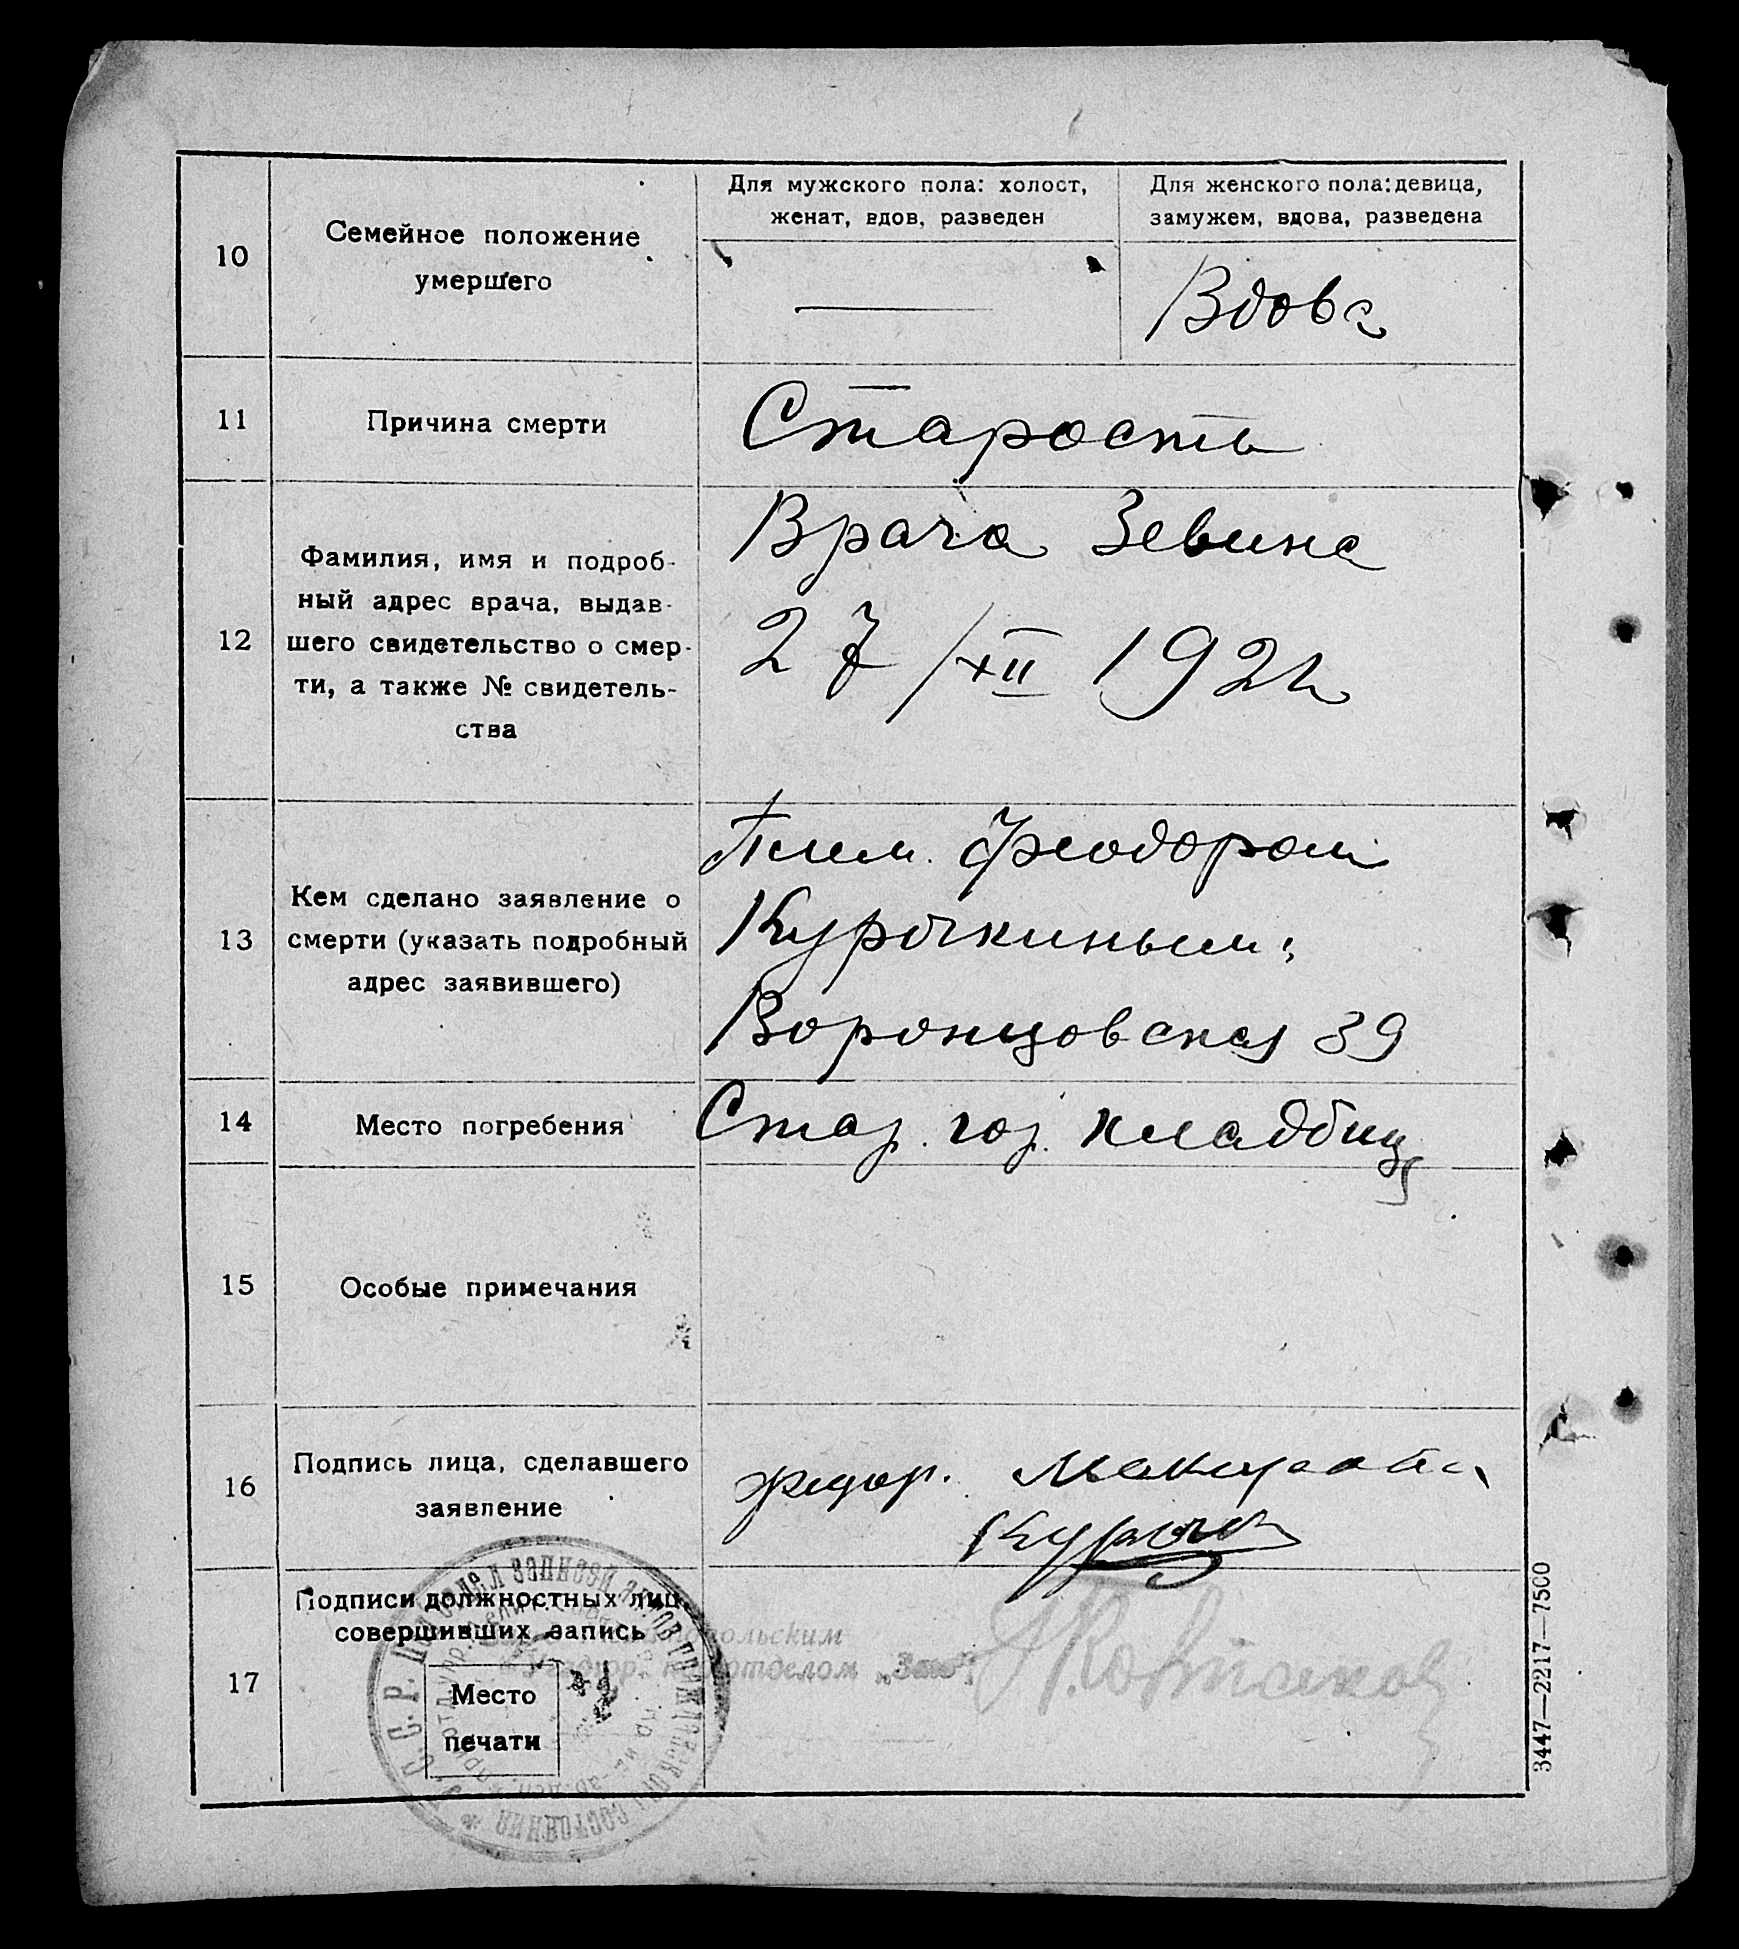 10
Семейное положение
умершего
Для мужского пола: холост,
женат, вдов, разведен
Для женского пола: девица,
замужем, вдова, разведена
Вдова
11
Причина смерти
Старость
12
Фамилия, имя и подроб-
ный адрес врача, выдав-
шего свидетельство о смер-
ти, а также № свидетель-
ства
Врача Зевина
27/XII 192
13
Кем сделано заявление о
смерти (указать подробный
адрес заявившего)
Плем. Феодором
Курочкиным,
Воронцовская 39
14
Место погребения
Стар. гор. кладбищ
15
Особые примечания
16
Подпись лица, сделавшего
заявление
17
Подписи должностных лиц,
совершивших запись
Место
печати
3447—2217—7500